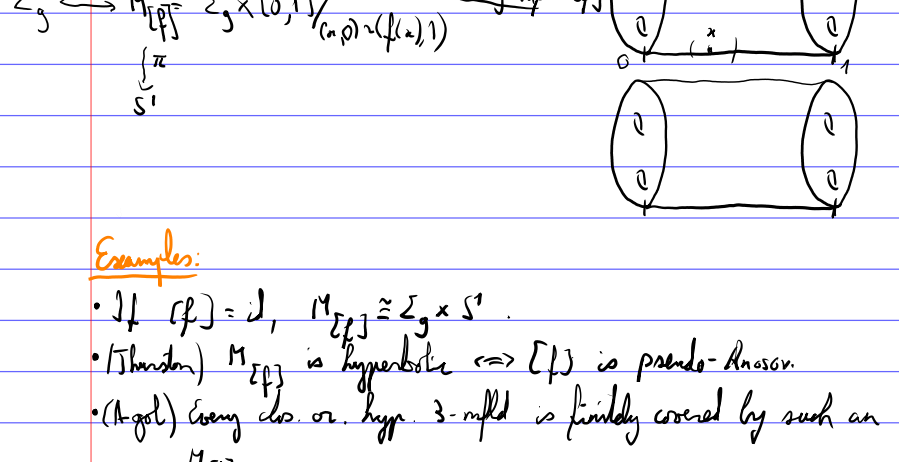 Σ_g ⟶ M_[f] = Σ_g × [0,1]/(x,0)~(f(x),1)
π
S¹
x
0 1
Examples:
• If [f] = id, M_[f] ≅ Σ_g × S¹.
• (Thurston) M_[f] is hyperbolic ⟺ [f] is pseudo-Anosov.
• (Agol) Every clos. or. hyp. 3-mfld is finitely covered by such an